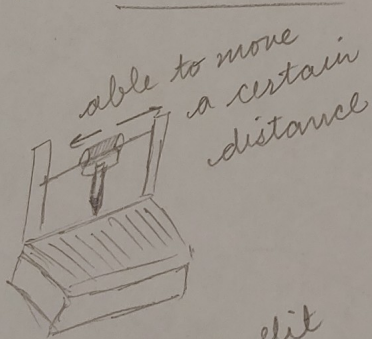 able to move
a certain
distance